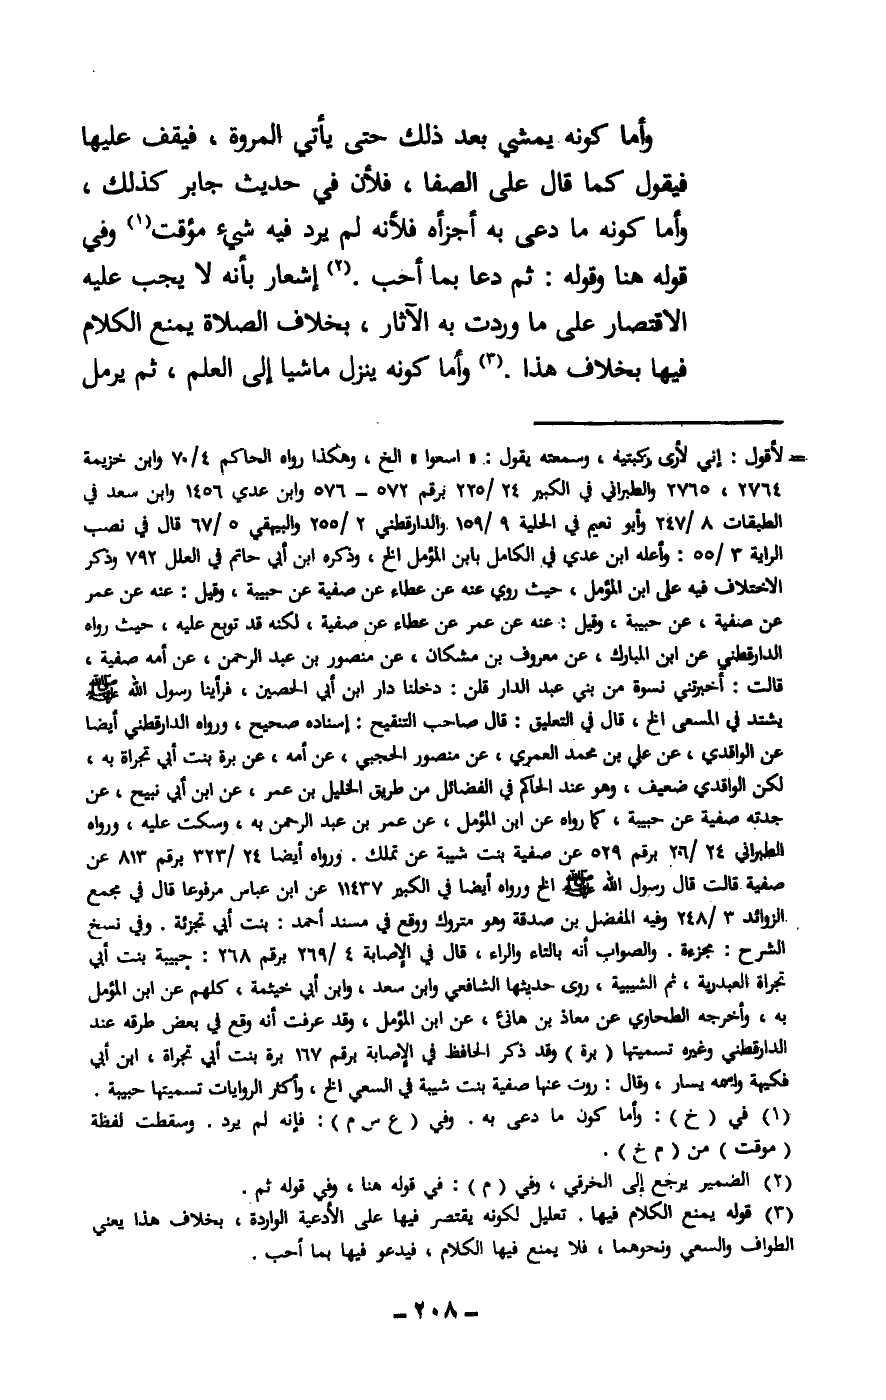 وأما كونه يمشي بعد ذلك حتى يأتي المروة ، فيقف عليها
فيقول كما قال على الصفا ، فلأن في حديث جابر كذلك ،
وأما كونه ما دعى به أجزأه فلأنه لم يرد فيه شيء مؤقت(١) وفي
قوله هنا وقوله : ثم دعا بما أحب .(٢) إشعار بأنه لا يجب عليه
الاقتصار على ما وردت به الآثار ، بخلاف الصلاة يمنع الكلام
فيها بخلاف هذا .(٣) وأما كونه ينزل ماشيا إلى العلم ، ثم يرمل
= لأقول : إني لأرى ركبتيه ، وسمعته يقول : « اسعوا » الخ ، وهكذا رواه الحاكم ٧٠/٤ وابن خزيمة
٢٧٦٤ ، ٢٧٦٥ والطبراني في الكبير ٢٤ /٢٢٥ برقم ٥٧٢ – ٥٧٦ وابن عدي ١٤٥٦ وابن سعد في
الطبقات ٨ /٢٤٧ وأبو نعيم في الحلية ٩ /١٥٩ والدارقطني ٢ /٢٥٥ والبيهقي ٥ /٦٧ قال في نصب
الراية ٣ /٥٥ : وأعله ابن عدي في الكامل بابن المؤمل الخ ، وذكره ابن أبي حاتم في العلل ٧٩٢ وذكر
الاختلاف فيه على ابن المؤمل ، حيث روي عنه عن عطاء عن صفية عن حبيبة ، وقيل : عنه عن عمر
عن صفية ، عن حبيبة ، وقيل : عنه عن عمر عن عطاء عن صفية ، لكنه قد توبع عليه ، حيث رواه
الدارقطني عن ابن المبارك ، عن معروف بن مشكان ، عن منصور بن عبد الرحمن ، عن أمه صفية ،
قالت : أخبرتني نسوة من بني عبد الدار قلن : دخلنا دار ابن أبي الحصين ، فرأينا رسول الله ﷺ
يشتد في المسعى الخ ، قال في التعليق : قال صاحب التنقيح : إسناده صحيح ، ورواه الدارقطني أيضا
عن الواقدي ، عن علي بن محمد العمري ، عن منصور الحجبي ، عن أمه ، عن برة بنت أبي تجراة به ،
لكن الواقدي ضعيف ، وهو عند الحاكم في الفضائل من طريق الخليل بن عمر ، عن ابن أبي نبيح ، عن
جدته صفية عن حبيبة ، كما رواه عن ابن المؤمل ، عن عمر بن عبد الرحمن به ، وسكت عليه ، ورواه
الطبراني ٢٤ /٢٠٦ برقم ٥٢٩ عن صفية بنت شيبة عن تملك . ورواه أيضا ٢٤ /٣٢٣ برقم ٨١٣ عن
صفية قالت قال رسول الله ﷺ الخ ورواه أيضا في الكبير ١١٤٣٧ عن ابن عباس مرفوعا قال في مجمع
الزوائد ٣ /٢٤٨ وفيه المفضل بن صدقة وهو متروك ووقع في مسند أحمد : بنت أبي تجزئة . وفي نسخ
الشرح : مجزءة . والصواب أنه بالتاء والراء ، قال في الإصابة ٤ /٢٦٩ برقم ٢٦٨ : حبيبة بنت أبي
تجراة العبدرية ، ثم الشيبية ، روى حديثها الشافعي وابن سعد ، وابن أبي خيثمة ، كلهم عن ابن المؤمل
به ، وأخرجه الطحاوي عن معاذ بن هانئ ، عن ابن المؤمل ، وقد عرفت أنه وقع في بعض طرقه عند
الدارقطني وغيره تسميتها ( برة ) وقد ذكر الحافظ في الإصابة برقم ١٦٧ برة بنت أبي تجراة ، ابن أبي
فكيهة واسمه يسار ، وقال : روت عنها صفية بنت شيبة في السعي الخ ، وأكثر الروايات تسميتها حبيبة .
(١) في ( خ ) : وأما كون ما دعى به . وفي ( ع س م ) : فإنه لم يرد . وسقطت لفظة
( موقت ) من ( م خ ) .
(٢) الضمير يرجع إلى الخرقي ، وفي ( م ) : في قوله هنا ، وفي قوله ثم .
(٣) قوله يمنع الكلام فيها . تعليل لكونه يقتصر فيها على الأدعية الواردة ، بخلاف هذا يعني
الطواف والسعي ونحوهما ، فلا يمنع فيها الكلام ، فيدعو فيها بما أحب .
– ٢٠٨ –